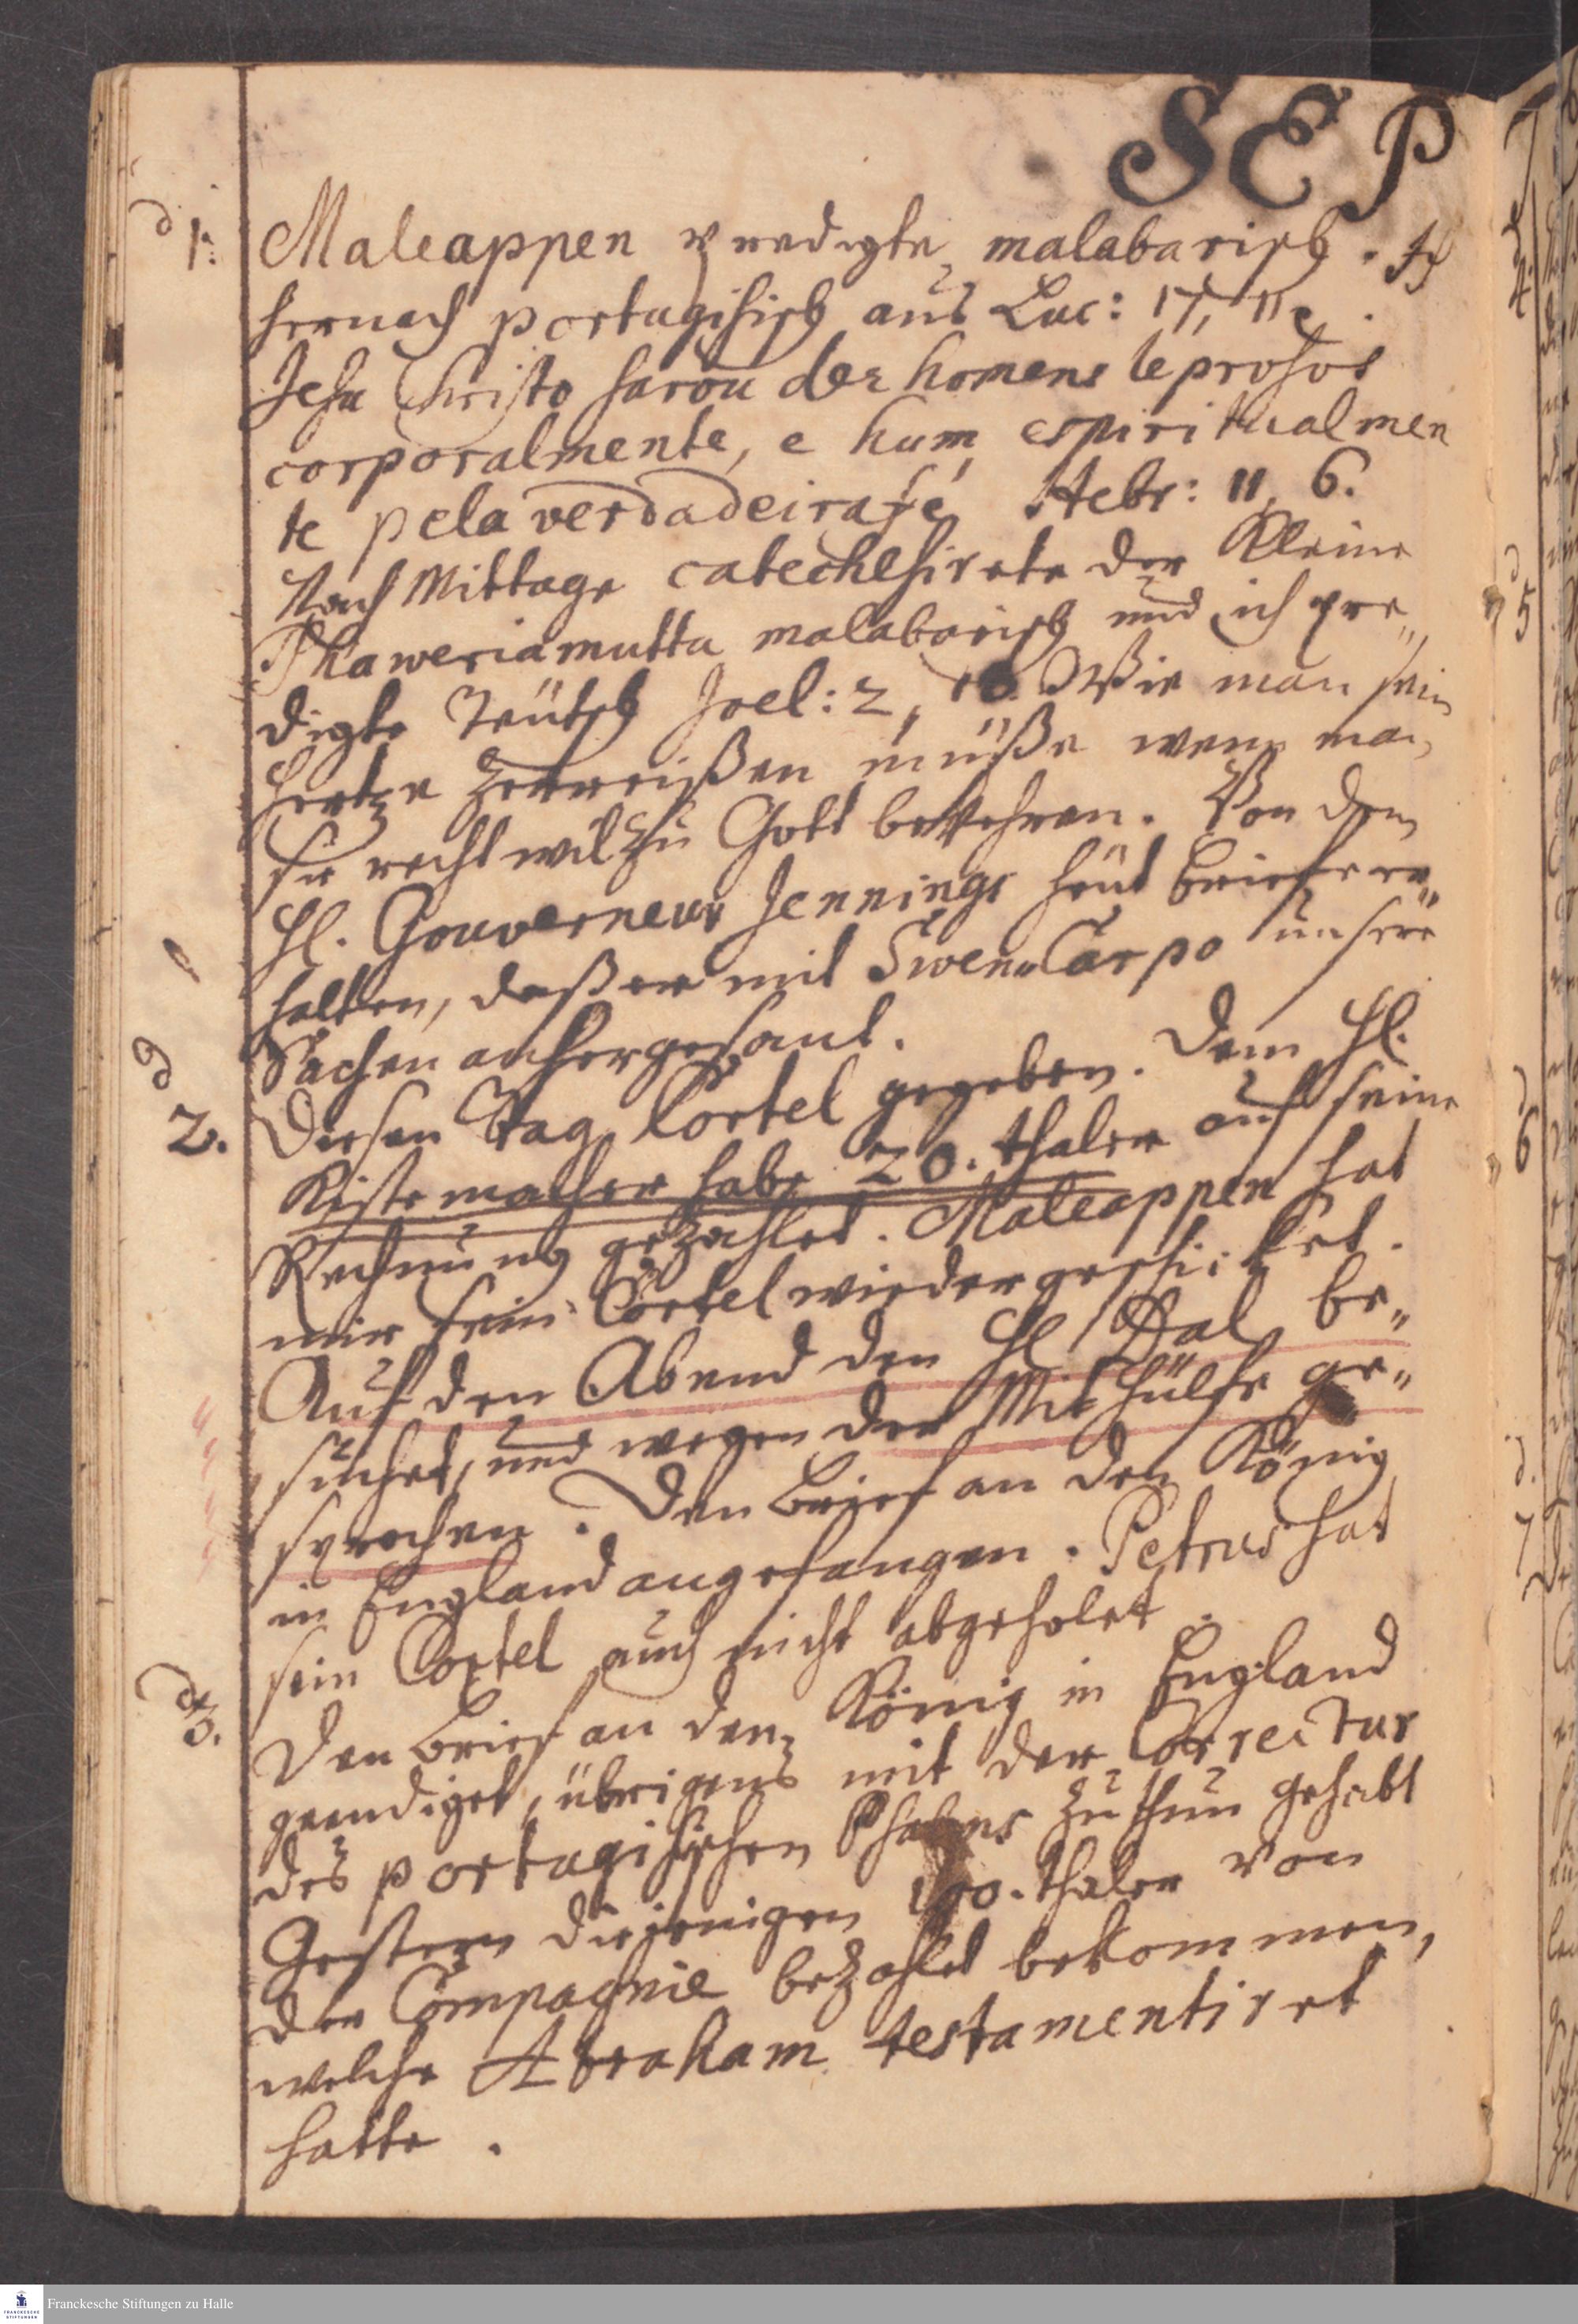 SEP
d 1. Maleappen predigte malabarisch. Ich
hernach portugisisch aus Luc: 17, 11.
Jesu Christo sarou dez homens leprosos
corporalmente, e hum espiritualmen
te pela verdadeira fé Hebr: 11, 6.
Nach Mittage catechesirete der Kleine
Schaweriamuttu malabarisch und ich pre„
digte Teütsch Joel: 2, Wie man sein
Hertze zerreißen müße wenn man
sie recht wil zu Gott bekehren. Von dem
Hl. Gouverneur Jennings heut Briefe er„
halten, daß er mit Swen Carpo unsere
Sachen anhergesant.
d 2. Diesen Tag Cortel gegeben. Dem Hl.
Kistemacher habe 20. thaler auf seine
Rechnung gezahlet. Maleappen hat
mir sein Cortel wieder geschicket.
Auf den Abend den Hl Dal be„
suchet, und wegen der Mit Hülfe ge„
sprochen. Den Brief an den König
in England angefangen. Petrus hat
sein Cortel auch nicht abgeholet.
d 3. Den Brief an den König in England
geendiget, übrigens mit der Correctur
des portugisischen Psalms zu thun gehabt
Gestern diejenigen 100. thaler von
der Compagnie bezahlet bekommen,
welche Abraham testamentiret
hatte.
4
5
6
d. 7
Franckesche Stiftungen zu Halle